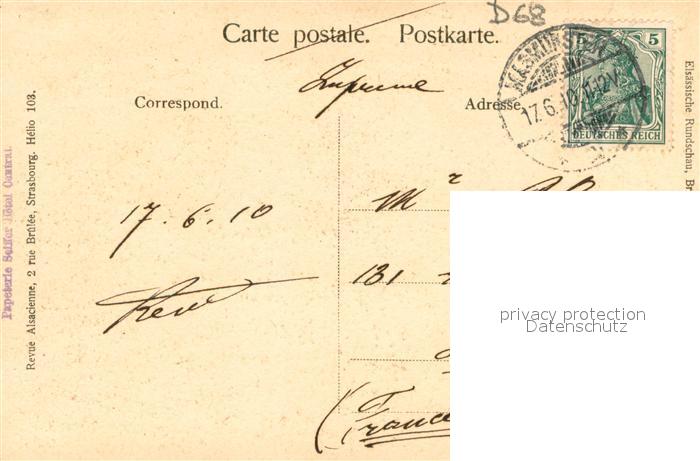 D68
Carte postale. Postkarte.
5 5
DEUTSCHES REICH
MASMÜNSTER
17.6.10.11-12V
Imprimé
Correspond.
Adresse
17.6.10
Mr
131
(France
Papeterie Hôtel Central.
Revue Alsacienne, 2 rue Brûlée, Strasbourg. Hélio 103.
Elsässische Rundschau, Br
privacy protection
Datenschutz